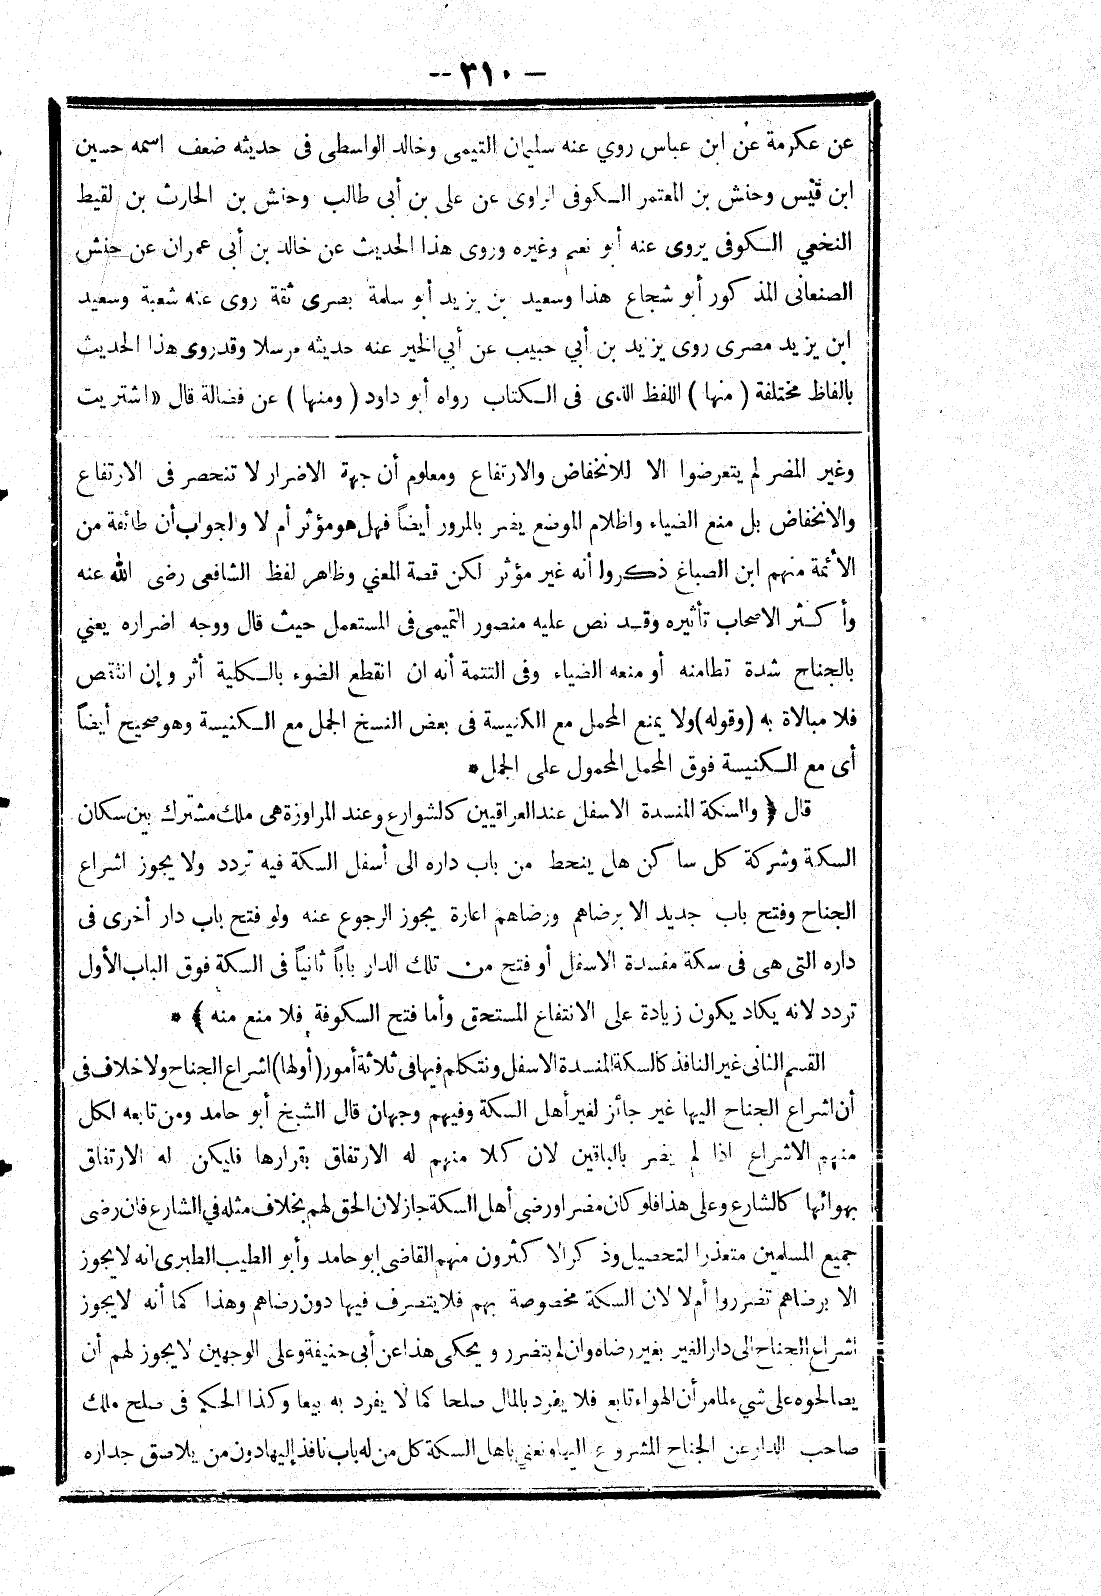 -- ٣١٠ --
عن عكرمة عن ابن عباس روي عنه سليمان التيمى وخالد الواسطى فى حديثه ضعف اسمه حسين
ابن قيس وحنش بن المعتمر الكوفى الراوى عن على بن أبى طالب وحنش بن الحارث بن لقيط
النخعي الكوفى يروى عنه أبو نعيم وغيره وروى هذا الحديث عن خالد بن أبى عمران عن حنش
الصنعانى المذكور أبو شجاع هذا وسعيد بن يزيد أبو سلمة بصرى ثقة روى عنه شعبة وسعيد
ابن يزيد مصرى روى يزيد بن أبي حبيب عن أبي الخير عنه حديثه مرسلا وقد روى هذا الحديث
بالفاظ مختلفة ( منها ) اللفظ الذى فى الكتاب رواه أبو داود ( ومنها ) عن فضالة قال « اشتريت
وغير المضر لم يتعرضوا الا للانخفاض والارتفاع ومعلوم أن جهة الاضرار لا تنحصر فى الارتفاع
والانخفاض بل منع الضياء واظلام الموضع يضر بالمرور أيضاً فهل هو مؤثر أم لا والجواب أن طائفة من
الأئمة منهم ابن الصباغ ذكروا أنه غير مؤثر لكن قصة المعني وظاهر لفظ الشافعى رضى الله عنه
وأكثر الاصحاب تأثيره وقد نص عليه منصور التميمى فى المستعمل حيث قال ووجه اضراره يعني
بالجناح شدة تطامنه أو منعه الضياء وفى التتمة أنه ان انقطع الضوء بالكلية أثر وإن انتقص
فلا مبالاة به (وقوله) ولا يمنع المحمل مع الكنيسة فى بعض النسخ الجمل مع الكنيسة وهو صحيح أيضاً
أى مع الكنيسة فوق المحمل المحمول على الجمل *
قال ﴿ والسكة المنسدة الاسفل عند العراقيين كالشوارع وعند المراوزة هى ملك مشترك بين سكان
السكة وشركة كل ساكن هل ينحط من باب داره الى أسفل السكة فيه تردد ولا يجوز اشراع
الجناح وفتح باب جديد الا برضاهم ورضاهم اعارة يجوز الرجوع عنه ولو فتح باب دار أخرى فى
داره التى هى فى سكة مفسدة الاسفل أو فتح من تلك الدار باباً ثانياً فى السكة فوق الباب الأول
تردد لانه يكاد يكون زيادة على الانتفاع المستحق وأما فتح السكوفة فلا منع منه ﴾ *
القسم الثانى غير النافذ كالسكة المنسدة الاسفل ونتكلم فيها فى ثلاثة أمور (أولها) اشراع الجناح ولا خلاف فى
أن اشراع الجناح اليها غير جائز لغير أهل السكة وفيهم وجهان قال الشيخ أبو حامد ومن تابعه لكل
منهم الاشراع اذا لم يضر بالباقين لان كلا منهم له الارتفاق بقرارها فليكن له الارتفاق
بهوائها كالشارع وعلى هذا فلو كان مضرا ورضى أهل السكة جاز لان الحق لهم بخلاف مثله في الشارع فان رضى
جميع المسلمين متعذرا لتحصيل وذكر الاكثرون منهم القاضى ابو حامد وأبو الطيب الطبرى انه لا يجوز
الا برضاهم تضرروا أم لا لان السكة مخصوصة بهم فلا يتصرف فيها دون رضاهم وهذا كما أنه لا يجوز
اشراع الجناح الى دار الغير بغير رضاه وان لم يتضرر ويحكى هذا عن أبى حنيفة وعلى الوجهين لا يجوز لهم أن
يصالحوه على شيء لما مر أن الهواء تابع فلا يفرد بالمال صلحا كما لا يفرد به بيعا وكذا الحكم فى صلح ملك
صاحب الدار عن الجناح المشروع اليها ونعني باهل السكة كل من له باب نافذ إليها دون من يلاصق جداره